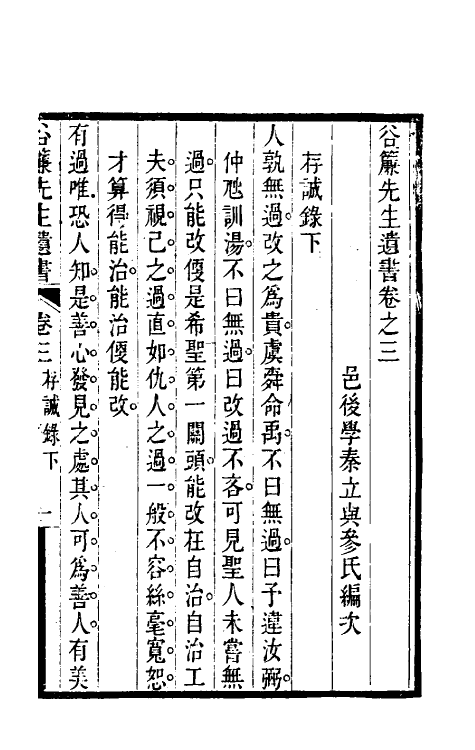 谷簾先生遺書卷之三
邑後學秦立與參氏編次
存誠錄下
人孰無過。改之爲貴。虞舜命禹。不曰無過。曰予違汝弼。
仲虺訓湯。不曰無過。曰改過不吝。可見聖人未嘗無
過。只能改便是希聖第一關頭。能改在自治。自治工
夫。須視己之過。直如仇人之過一般。不容絲毫寬恕。
才算得能治。能治便能改。
有過唯恐人知。是善心發見之處。其人可爲善。人有美
谷簾先生遺書 卷三 存誠錄下 一